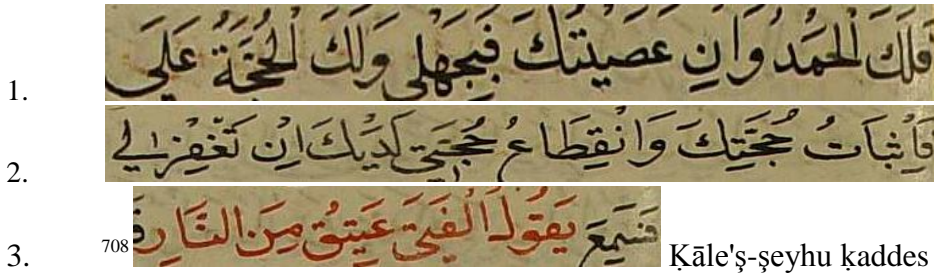 1. فَلَكَ الْحَمْدُ وَاِنِ عَصَيْتُكَ فَبِجَهْلِى وَلَكَ الْحُجَّةُ عَلَىَّ
2. فَاِثْبَاتُ حُجَّتِكَ وَانْقِطَاعُ حُجَّتِى لَدَيْكَ اِنْ تَغْفِرْ لِى
3. 708 فَسَمِعَ يَقُولُ الْفَتَى عَتِيقٌ مِنَ النَّارِ Ḳāle'ş-şeyhu ḳaddes